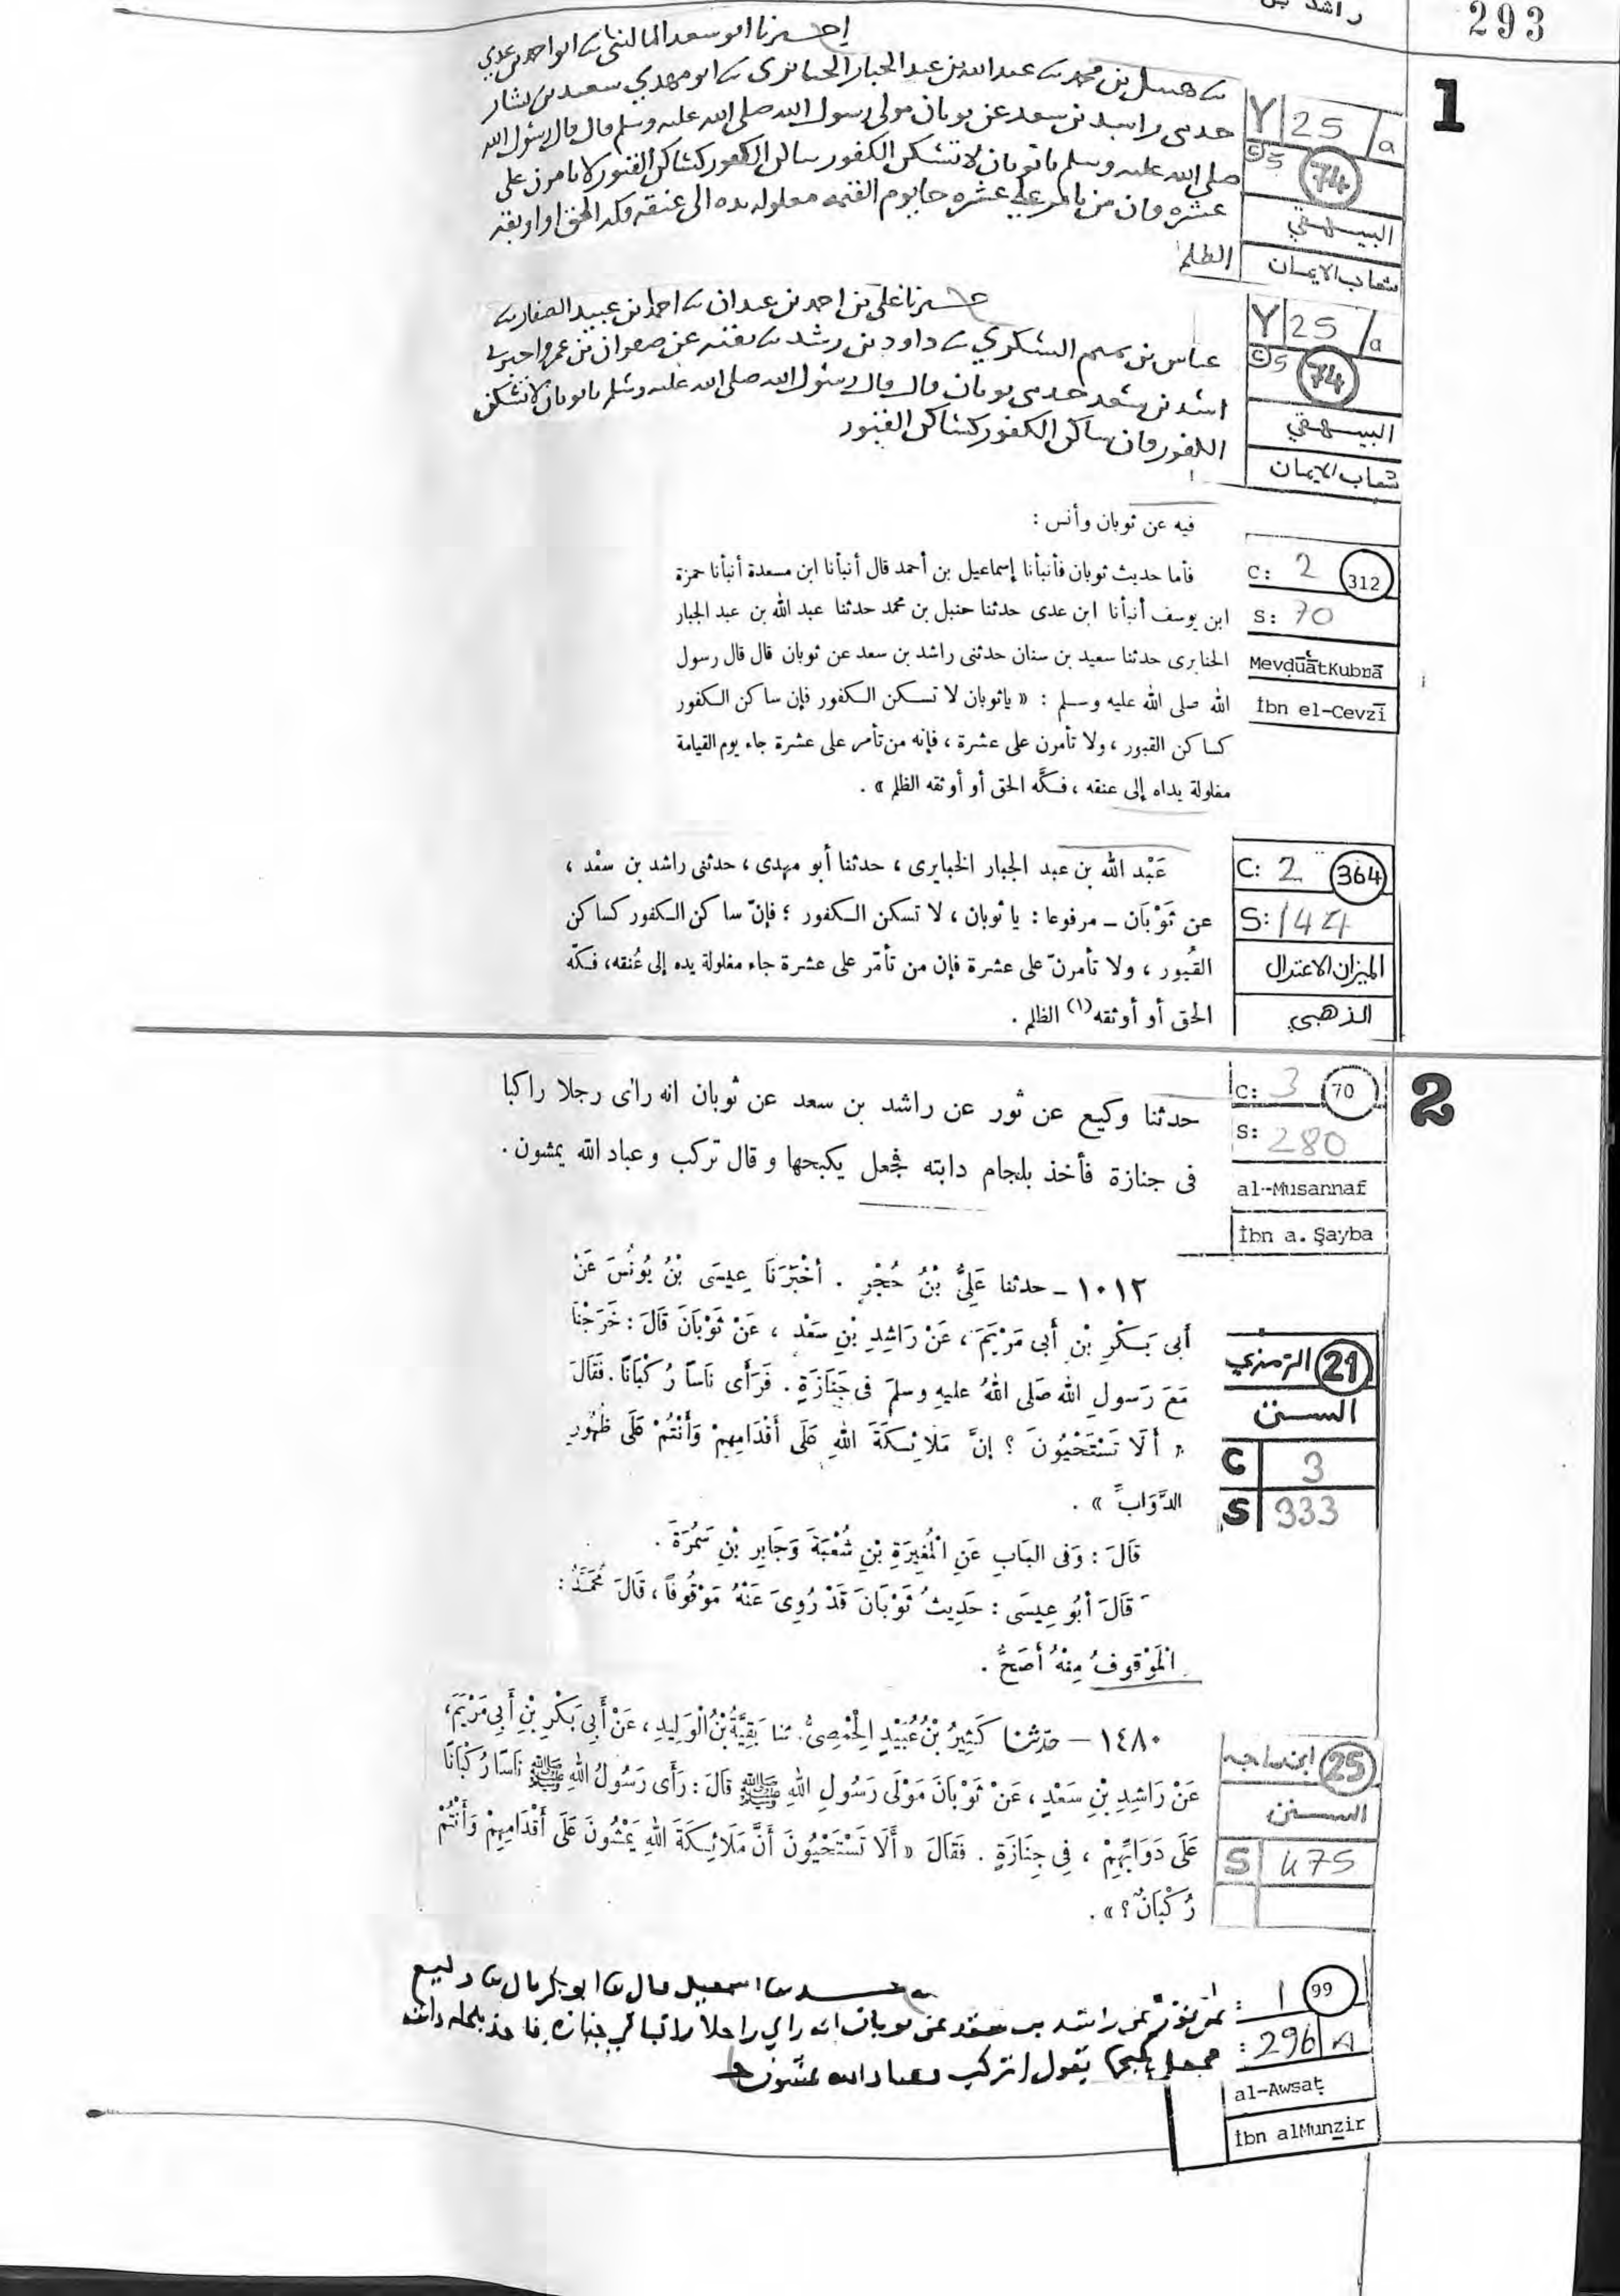 293
راشد بن
1
إخبرنا ابو سعد المالىنى ىا ابو احمد بن عدي
ىا حىىل بن محمد ىا عبد الله بن عبد الجبار الحىاىرى ىا ابو مهدي سعيد بن
حدىى راسد بن سعد عن ىوبان مولى رسول الله صلى الله عليه وسلم قال قال رسول الله
صلى الله عليه وسلم يا ثوبان لا تسكن الكفور ساكن الكفور كساكن القبور لا تامرن على
عشره فان من تامر على عشره جا يوم القيمه مغلوله يده الى عنقه فكه الحق او اوبقه
الظلم
Y 25 / a
C 5 74
البيهقي
شعاب الايمان
حبرنا علي بن احمد بن عبدان ىا احمد بن عبيد الصفار ىا
عباس بن السكري ىا داود بن رشيد ىا بقيه عن صفوان بن عمرو اخبرنى
راشد بن سعد حدىى ىوبان قال قال رسول الله صلى الله عليه وسلم يا ىوبان لا تسكن
الكفور فان ساكن الكفور كساكن القبور
Y 25 / a
C 5 74
البيهقي
شعاب الايمان
فيه عن ثوبان وأنس :
فأما حديث ثوبان فأنبأنا إسماعيل بن أحمد قال أنبأنا ابن مسعدة أنبأنا حمزة
ابن يوسف أنبأنا ابن عدى حدثنا حنبل بن محمد حدثنا عبد الله بن عبد الجبار
الحنابرى حدثنا سعيد بن سنان حدثنى راشد بن سعد عن ثوبان قال قال رسول
الله صلى الله عليه وسلم : « ياثوبان لا تسكن الكفور فإن ساكن الكفور
كساكن القبور ، ولا تأمرن على عشرة ، فإنه من تأمر على عشرة جاء يوم القيامة
مغلولة يداه إلى عنقه ، فكَّه الحق أو أوثقه الظلم » .
C: 2 312
S: 70
MevḍūātKubrā
İbn el-Cevzī
عَبْد الله بن عبد الجبار الخبايرى ، حدثنا أبو مهدى ، حدثنى راشد بن سعْد ،
عن ثَوْبَان ــ مرفوعا : يا ثوبان ، لا تسكن الكفور ؛ فإنّ ساكن الكفور كساكن
القُبور ، ولا تأمرنّ على عشرة فإن من تأمّر على عشرة جاء مغلولة يده إلى عُنقه، فكّه
الحق أو أوثقه (١) الظلم .
C: 2 364
S: 144
الميزان الاعتدال
الذهبي
2
حدثنا وكيع عن ثور عن راشد بن سعد عن ثوبان انه رائ رجلا راكبا
فى جنازة فأخذ بلجام دابته فجعل يكبحها و قال تركب و عباد الله يمشون .
C: 3 70
S: 280
al-Musannaf
İbn a. Şayba
١٠١٢ ــ حدثنا عَلِيُّ بْنُ حُجْرٍ . أَخْبَرَنَا عِيسَى بْنُ يُونُسَ عَنْ
أَبِى بَكْرِ بْنِ أَبِى مَرْيَمَ ، عَنْ رَاشِدِ بْنِ سَعْدٍ ، عَنْ ثَوْبَانَ قَالَ : خَرَجْنَا
مَعَ رَسولِ اللهِ صَلى اللهُ عليهِ وسلمَ فى جَنَازَةٍ . فَرَأَى نَاسًا رُكْبَانًا . فَقَالَ
« أَلَا تَسْتَحْيُونَ ؟ إنَّ مَلَائِكَةَ اللهِ عَلَى أَقْدَامِهِمْ وَأَنْتُمْ عَلَى ظُهُورِ
الدَّوَابِّ » .
قَالَ : وَفى البَابِ عَنِ الْمُغِيرَةِ بْنِ شُعْبَةَ وَجَابِرِ بْنِ سَمُرَةَ .
قَالَ أَبُو عِيسَى : حَدِيثُ ثَوْبَانَ قَدْ رُوِىَ عَنْهُ مَوْقُوفًا ، قَالَ مُحَمَّدٌ :
الْمَوْقُوفُ مِنْهُ أَصَحُّ .
21 الترمذي
السنن
C 3
S 333
١٤٨٠ — حَدَّثَنَا كَثِيرُ بْنُ عُبَيْدٍ الْحِمْصِيُّ. ثنا بَقِيَّةُ بْنُ الْوَلِيدِ ، عَنْ أَبِي بَكْرِ بْنِ أَبِي مَرْيَمَ،
عَنْ رَاشِدِ بْنِ سَعْدٍ ، عَنْ ثَوْبَانَ مَوْلَى رَسُولِ اللهِ ﷺ قَالَ : رَأَى رَسُولُ اللهِ ﷺ نَاسًا رُكْبَانًا
عَلَى دَوَابِّهِمْ ، فِي جِنَازَةٍ . فَقَالَ « أَلَا تَسْتَحْيُونَ أَنَّ مَلَائِكَةَ اللهِ يَمْشُونَ عَلَى أَقْدَامِهِمْ وَأَنْتُمْ
رُكْبَانٌ ؟ » .
25 ابن ماجه
السنن
S 475
حدىىا اسمعيل قال ىا ابو بكر قال ىا وكيع
عن ثور عن راشد بن سعد عن ىوبان انه راي راجلا راكبا في جنازه فاخذ بلجام دابته
فجعل يكبحها يقول اتركب وعباد الله يمشون
: 1 99
: 296 A
al-Awsaṭ
İbn alMunẕir